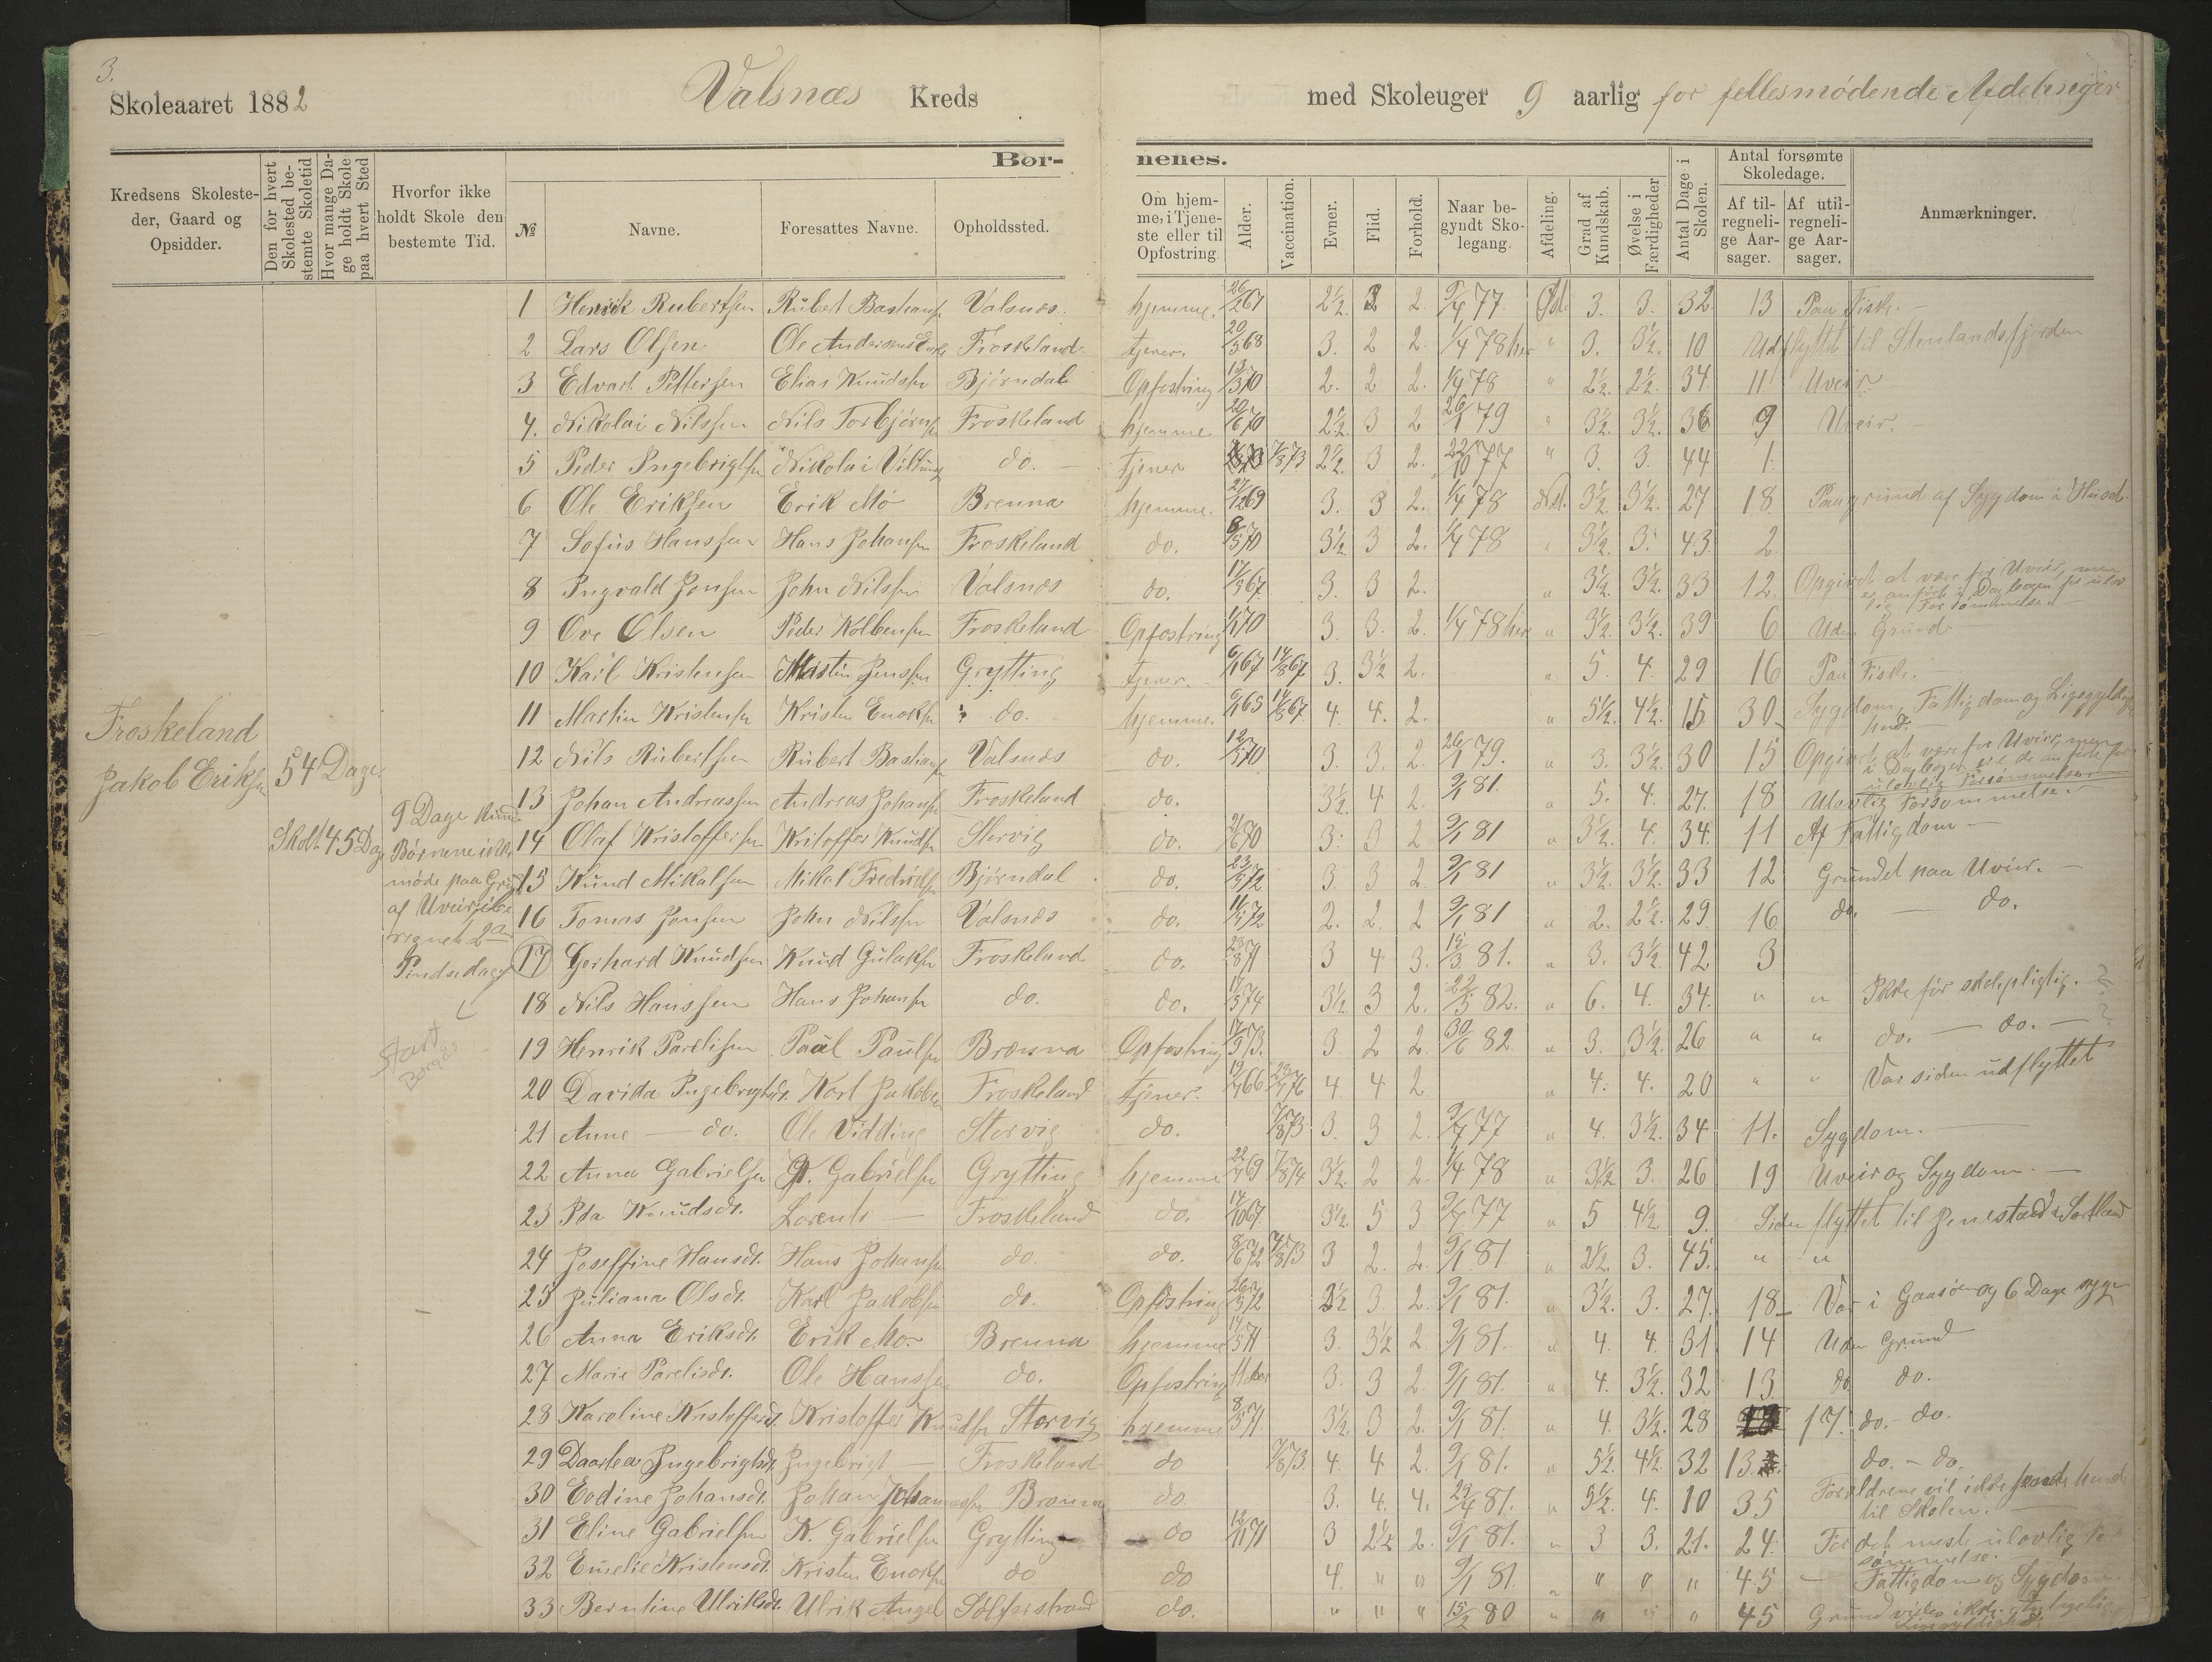 3.
Skoleaaret 1882 Valsnæs Kreds med Skoleuger 9 aarlig for fellesmødende Afdelinger
Kredsens Skolesteder, Gaard og Opsidder.
Den for hvert Skolested bestemte Skoletid
Hvor mange Dage holdt Skole paa hvert Sted
Hvorfor ikke holdt Skole den bestemte Tid.
Børnenes.
№ Navne. Foresattes Navne. Opholdssted. Om hjemme, i Tjeneste eller til Opfostring Alder. Vaccination. Evner. Flid. Forhold. Naar begyndt Skolegang. Afdeling. Grad af Kundskab. Øvelse i Færdigheder Antal Dage i Skolen. Antal forsømte Skoledage. Af tilregnelige Aarsager. Af utilregnelige Aarsager. Anmærkninger.
Froskeland
Jakob Eriksen 54 Dage
Holdt 45 Dage
9 Dage kunde
Børnene ikke
møde paa Grund
af Uveir, ibe
regnet 2den
Pindsedag
Start
Borgås
1 Henrik Rubertsen Rubert Bastians Valsnæs. hjemme. 26/2 67 2½. 3 2. 9/4 77 Øst. 3. 3. 32. 13 Paa Fiske.
2 Lars Olsen. Ole Andersens Enke Froskeland. tjener. 20/3 68 3. 2 2. 1/4 78 her " 3. 3½. 10 Udflyttet til Stenlandsfjorden
3 Edvart Pettersen Elias Knudsen Bjørndal Opfostring 13/3 70 2. 2 2. 1/4 78 " 2½. 2½. 34. 11 Uveir
4. Nikolai Nilssen Nils Torbjørns Froskeland hjemme 20/6 70 2½. 3 2 26/1 79 " 3½. 3½. 36 9 Uveir.
5 Peder Ingebrigtsen Nikolai Vitting do. tjener 7/8 73 2½. 3 2. 22/10 77 " 3. 3. 44 1.
6 Ole Eriksen Erik Mo Brenna hjemme. 21/12 69 3. 3 2. 1/4 78 Nst. 3½. 3½. 27 18. Paa grund af Sygdom i Huset.
7 Sofus Hanssen Hans Johansen Froskeland do. 8/5 70 3½. 3 2. 1/4 78 " 3½. 3. 43. 2.
8 Ingvald Jonsen John Nilssen Valsnæs do. 17/3 67. 3. 3 2. " 3½. 3½. 33 12. Opgivet at være for Uveir, men
er anført i Dagbogen for ulov
lig Forsømmelse.
9 Ove Olsen Peder Kolbensen Froskeland Opfostring 1/1 70 3. 3. 2. 1/4 78 her " 3½. 3½. 39 6. Uden Grund.
10 Karl Kristensen Martin Jenssen Grytting tjener. 6/1 67 14/8 67 3. 3½ 2. " 5. 4. 29 16 Paa Fiske.
11 Martin Kristensen Kristen Enoksen do. hjemme. 6/1 65 14/8 67. 4. 4. 2. " 5½. 4½. 15 30 Sygdom, Fattigdom og Ligegyldig
hed.
12 Nils Rubertsen Rubert Bastians Valsnæs do. 12/1 70 3. 3. 2. 26/1 79. " 3. 3½. 30 15 Opgivet at være for Uveir, men
i Dagbogen er de anførte for
ulovlig Forsømmelser
13 Johan Andreassen Andreas Johansen Froskeland do. 3½. 4 2. 9/1 81. " 5. 4. 27. 18 Ulovlig Forsømmelse.
14 Olaf Kristoffersen Kristoffer Knudsen Storvig do. 21/6 70 3. 3 2 9/1 81 " 3½. 4. 34. 11 Af Fattigdom
15 Knud Mikalsen Mikal Fredriksen Bjørndal do. 23/5 72 3. 3 2. 9/1 81 " 3½. 3½. 33 12 Grundet paa Uveir.
16 Tomas Jonsen John Nilssen Valsnæs do. 11/5 72 2. 2. 2 9/1 81 " 2. 2½. 29 16 do. do.
17 Gerhard Knudsen Knud Gulaksen Froskeland do. 23/8 71 3 4 3. 15/3 81. " 3. 3½. 42 3
18 Nils Hanssen Hans Johansen do. do. 17/5 74 3½. 3 2. 22/5 82. " 6. 4. 34. " " Ikke før skolepligtig. ?
19 Henrik Parelisen Paal Paulsen Brenna Opfostring 17/9 73. 3. 2 2. 30/6 82. " 3. 3½. 26 " " do. do. ?
20 Davida Ingebrigtsdt. Karl Jakobsen Froskeland tjener. 19/7 66 29/7 76 4 4 2. " 4. 4. 20 " " Var siden udflyttet
21 Anne do. Ole Vidding Storvig do. 7/8 73 3. 3 2. 9/4 77 " 4. 3½. 34 11. Sygdom.
22 Anna Gabrielsen K. Gabrielsen Grytting hjemme 22/7 69 7/8 74 3½. 2 2. 1/4 78 " 3½. 3. 26 19 Uveir og Sygdom.
23 Ida Knudsdt. Lorents Froskeland do. 14/10 67. 3½. 5 3 9/4 77 " 5 4½ 9. Siden flyttet til Jenestad i Sortland
24 Joseffine Hansdt. Hans Johansen do. do. 8/6 72 7/8 73 3 2. 2. 9/1 81. " 2½. 3. 45. " "
25 Juliana Olsdt. Karl Jakobsen do. Opfostring 26/5 72 3½ 3. 2. 9/1 81. " 3½. 3. 27. 18 Var i Gaasøen og 6 Dage syge
26 Anna Eriksdt. Erik Mo Brenna hjemme 14/5 71 3. 3½ 2 9/1 81. " 4. 4. 31. 14 Uden Grund
27 Marie Parelisdt. Ole Hanssen do. Opfostring 3. 3 2. 9/1 81. " 4. 3½. 32 13. do do.
28 Karoline Kristoffersdt. Kristoffer Knudsen Storvig hjemme 8/5 71. 3½. 3 2. 9/1 81. " 4. 3½. 28 17. do. - do.
29 Daartea Ingebrigtsdt. Ingebrigt Froskeland do 7/8 73. 4. 4 2. 9/1 81. " 5½. 4½. 32 13. do. - do.
30 Eodine Johansdt. Johan Johannessen Brenna do. 3. 4. 4. 29/4 81. " 5½. 4. 10 35 Forældrene vil ikke sende hende
til Skolen.
31 Eline Gabrielsen K. Gabrielsen Grytting do 12/11 71 3 2½ 2. 9/1 81. " 3 3. 21. 24. For det meste ulovlig for
sømmelse.
32 Emelie Kristensdt. Kristen Enoksen do do 4. " " 9/1 81. " " " " 45 Fattigdom og Sygdom.
33 Berntine Ulriksdt. Ulrik Angel Sølferstrand do. " " " 15/2 80 " " " " 45 Grund vides ikke.